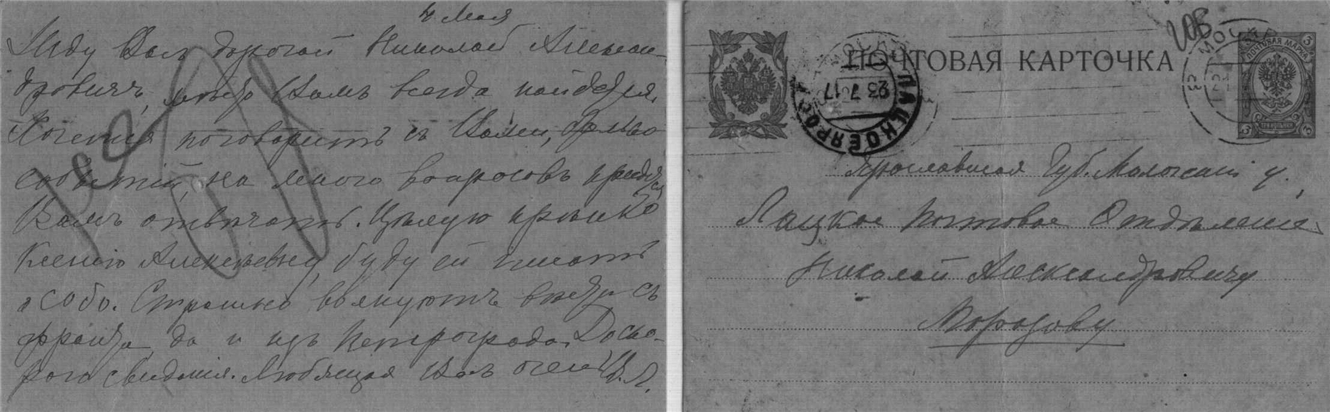 4 Мая
Жду Васъ дорогой Николай Алексан-
дровичъ, Вамъ всегда найдется.
Хочется поговорить съ Вами,
событій, на много вопросовъ придется
Вамъ отвѣчать. Цѣлую крѣпко
Ксенію Алексѣевну, буду ей писать
особо. Страшно волнуютъ вѣсти съ
фронта да и изъ Петрограда. До ско-
раго свиданія. Любящая Васъ очень
ПОЧТОВАЯ КАРТОЧКА
МОСКВА
23 7 17
ПОЧТОВАЯ МАРКА
3 3
Ярославская Губ. Моложскій у.
Лацкое почтовое Отдѣленіе
Николаю Александровичу
Морозову